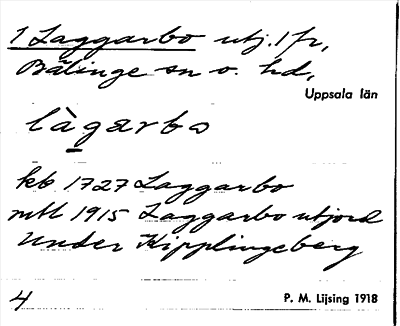 1 Laggarbo utj. 1 fr,
Bälinge sn o. hd,
Uppsala län
làgarbo
kb 1727 Laggarbo
mtl 1915 Laggarbo utjord
under Kipplingeberg
4 P. M. Lijsing 1918